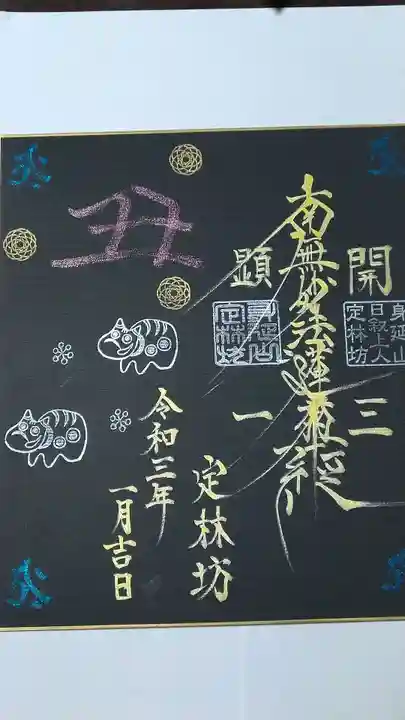 開三
身延山
日叙上人
定林坊
南無妙法蓮華經
顕一
身延山
定林坊
定林坊
令和三年
一月吉日
丑